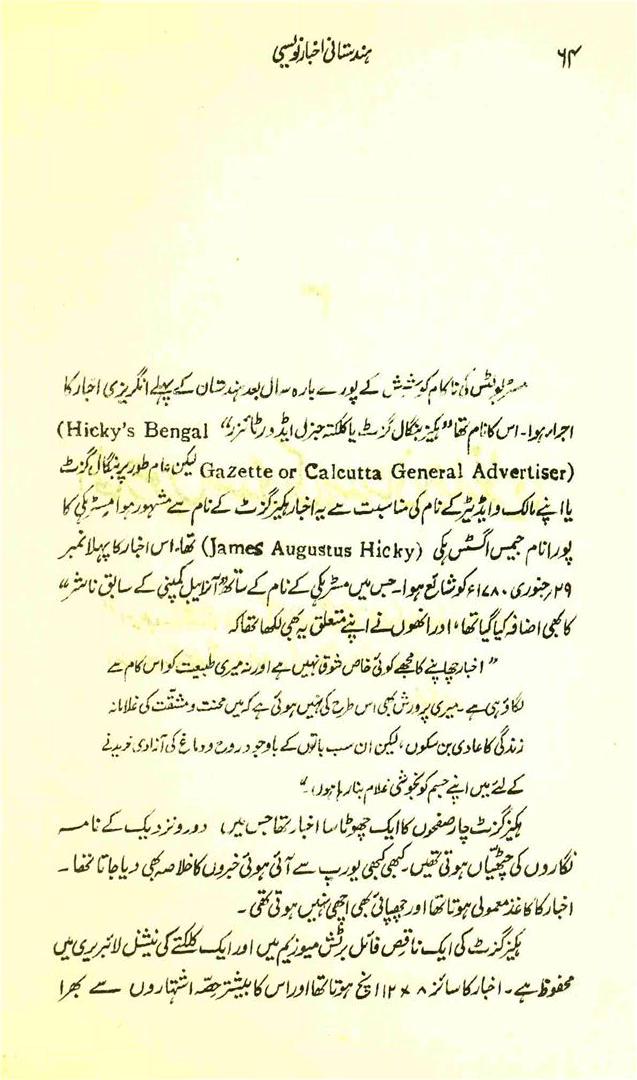 ۶۴ ہندستانی اخبار نویسی
مسٹر بولٹس کی ناکام کوشش کے پورے بارہ سال بعد ہندستان کے پہلے انگریزی اخبار کا
اجراء ہوا۔ اس کا نام تھا "ہکیز بنگال گزٹ یا کلکتہ جنرل ایڈورٹائزر" (Hicky's Bengal
Gazette or Calcutta General Advertiser) لیکن عام طور پر بنگال گزٹ
یا اپنے مالک و ایڈیٹر کے نام کی مناسبت سے یہ اخبار ہکیز گزٹ کے نام سے مشہور ہوا مسٹر ہکی کا
پورا نام جیمس اگسٹس ہکی (James Augustus Hicky) تھا، اس اخبار کا پہلا نمبر
۲۹؍جنوری ۱۷۸۰ء کو شائع ہوا۔ جس میں مسٹر ہکی کے نام کے ساتھ "آنرایبل کمپنی کے سابق ناشر"
کا بھی اضافہ کیا گیا تھا، اور انھوں نے اپنے متعلق یہ بھی لکھا تھا کہ
"اخبار چھاپنے کا مجھے کوئی خاص شوق نہیں ہے اور نہ میری طبیعت کو اس کام سے
لگاؤ ہی ہے۔ میری پرورش بھی اس طرح کی نہیں ہوئی ہے کہ میں محنت و مشقّت کی غلامانہ
زندگی کا عادی بن سکوں، لیکن ان سب باتوں کے باوجود روح و دماغ کی آزادی خریدنے
کے لئے میں اپنے جسم کو بخوشی غلام بنا رہا ہوں۔"
ہکیز گزٹ چار صفحوں کا ایک چھوٹا سا اخبار تھا جس میں دور و نزدیک کے نامہ
نگاروں کی چھٹیاں ہوتی تھیں۔ کبھی کبھی یورپ سے آئی ہوئی خبروں کا خلاصہ بھی دیا جاتا تھا۔
اخبار کا کاغذ معمولی ہوتا تھا اور چھپائی بھی اچھی نہیں ہوتی تھی۔
ہکیز گزٹ کی ایک ناقص فائل برٹش میوزیم میں اور ایک کلکتے کی نیشنل لائبریری میں
محفوظ ہے۔ اخبار کا سائز ۸ × ۱۲ انچ ہوتا تھا اور اس کا بیشتر حصّہ اشتہاروں سے بھرا